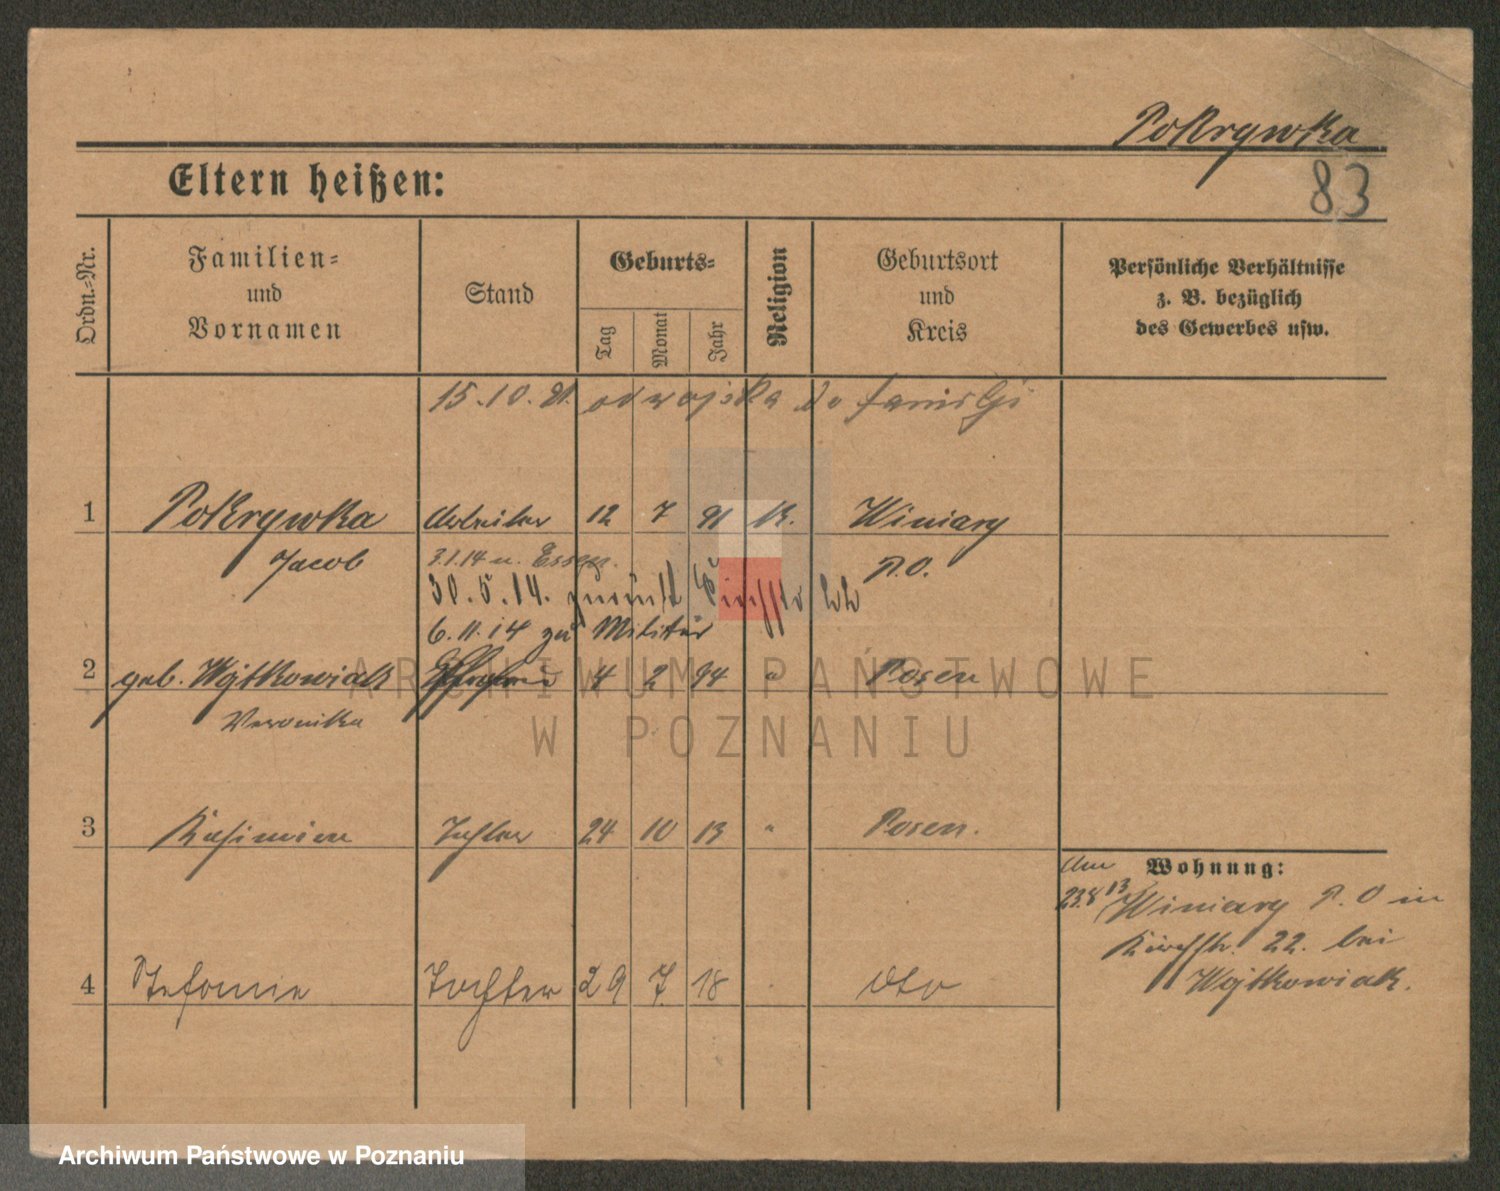 Pokrywka
Eltern heißen:
83
Ordn.-Nr.
Familien-
und
Vornamen
Stand
Geburts-
Tag
Monat
Jahr
Religion
Geburtsort
und
Kreis
Persönliche Verhältnisse
z. B. bezüglich
des Gewerbes usw.
15.10.21. od wojska do familji
1 Pokrywka Arbeiter 12 7 91 k. Winiary
Jacob 3.1.14 n. Essen. P.O.
30.5.14. zurück Kirchstr 22
6.11.14 zu Militär
2 geb. Wojtkowiak Ehefrau 4 2 94 " Posen
Veronika
3 Kasimiera Tochter 24 10 13 " Posen.
4 Stefanie Tochter 29 7 18 dto
Wohnung:
Am
23.8 13 Winiary P. O in
Kirchstr. 22. bei
Wojtkowiak.
ARCHIWUM PAŃSTWOWE
W POZNANIU
Archiwum Państwowe w Poznaniu